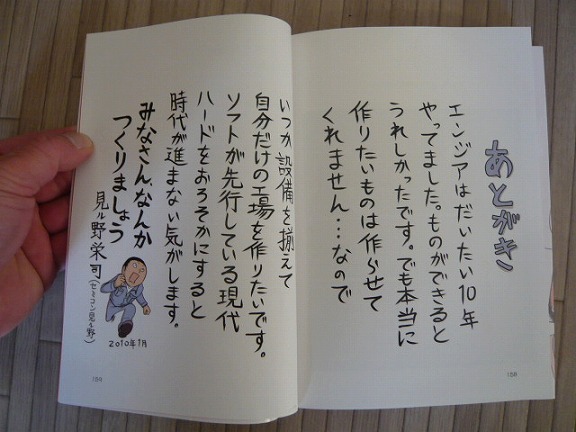 あとがき
エンジアはだいたい10年
やってました。ものができると
うれしかったです。でも本当に
作りたいものは作らせて
くれません…なので
158
いつか設備を揃えて
自分だけの工場を作りたいです。
ソフトが先行している現代
ハードをおろそかにすると
時代が進まない気がします。
みなさん、なんか
つくりましょう
見ル野栄司
(セミコン見ル野)
2010年1月